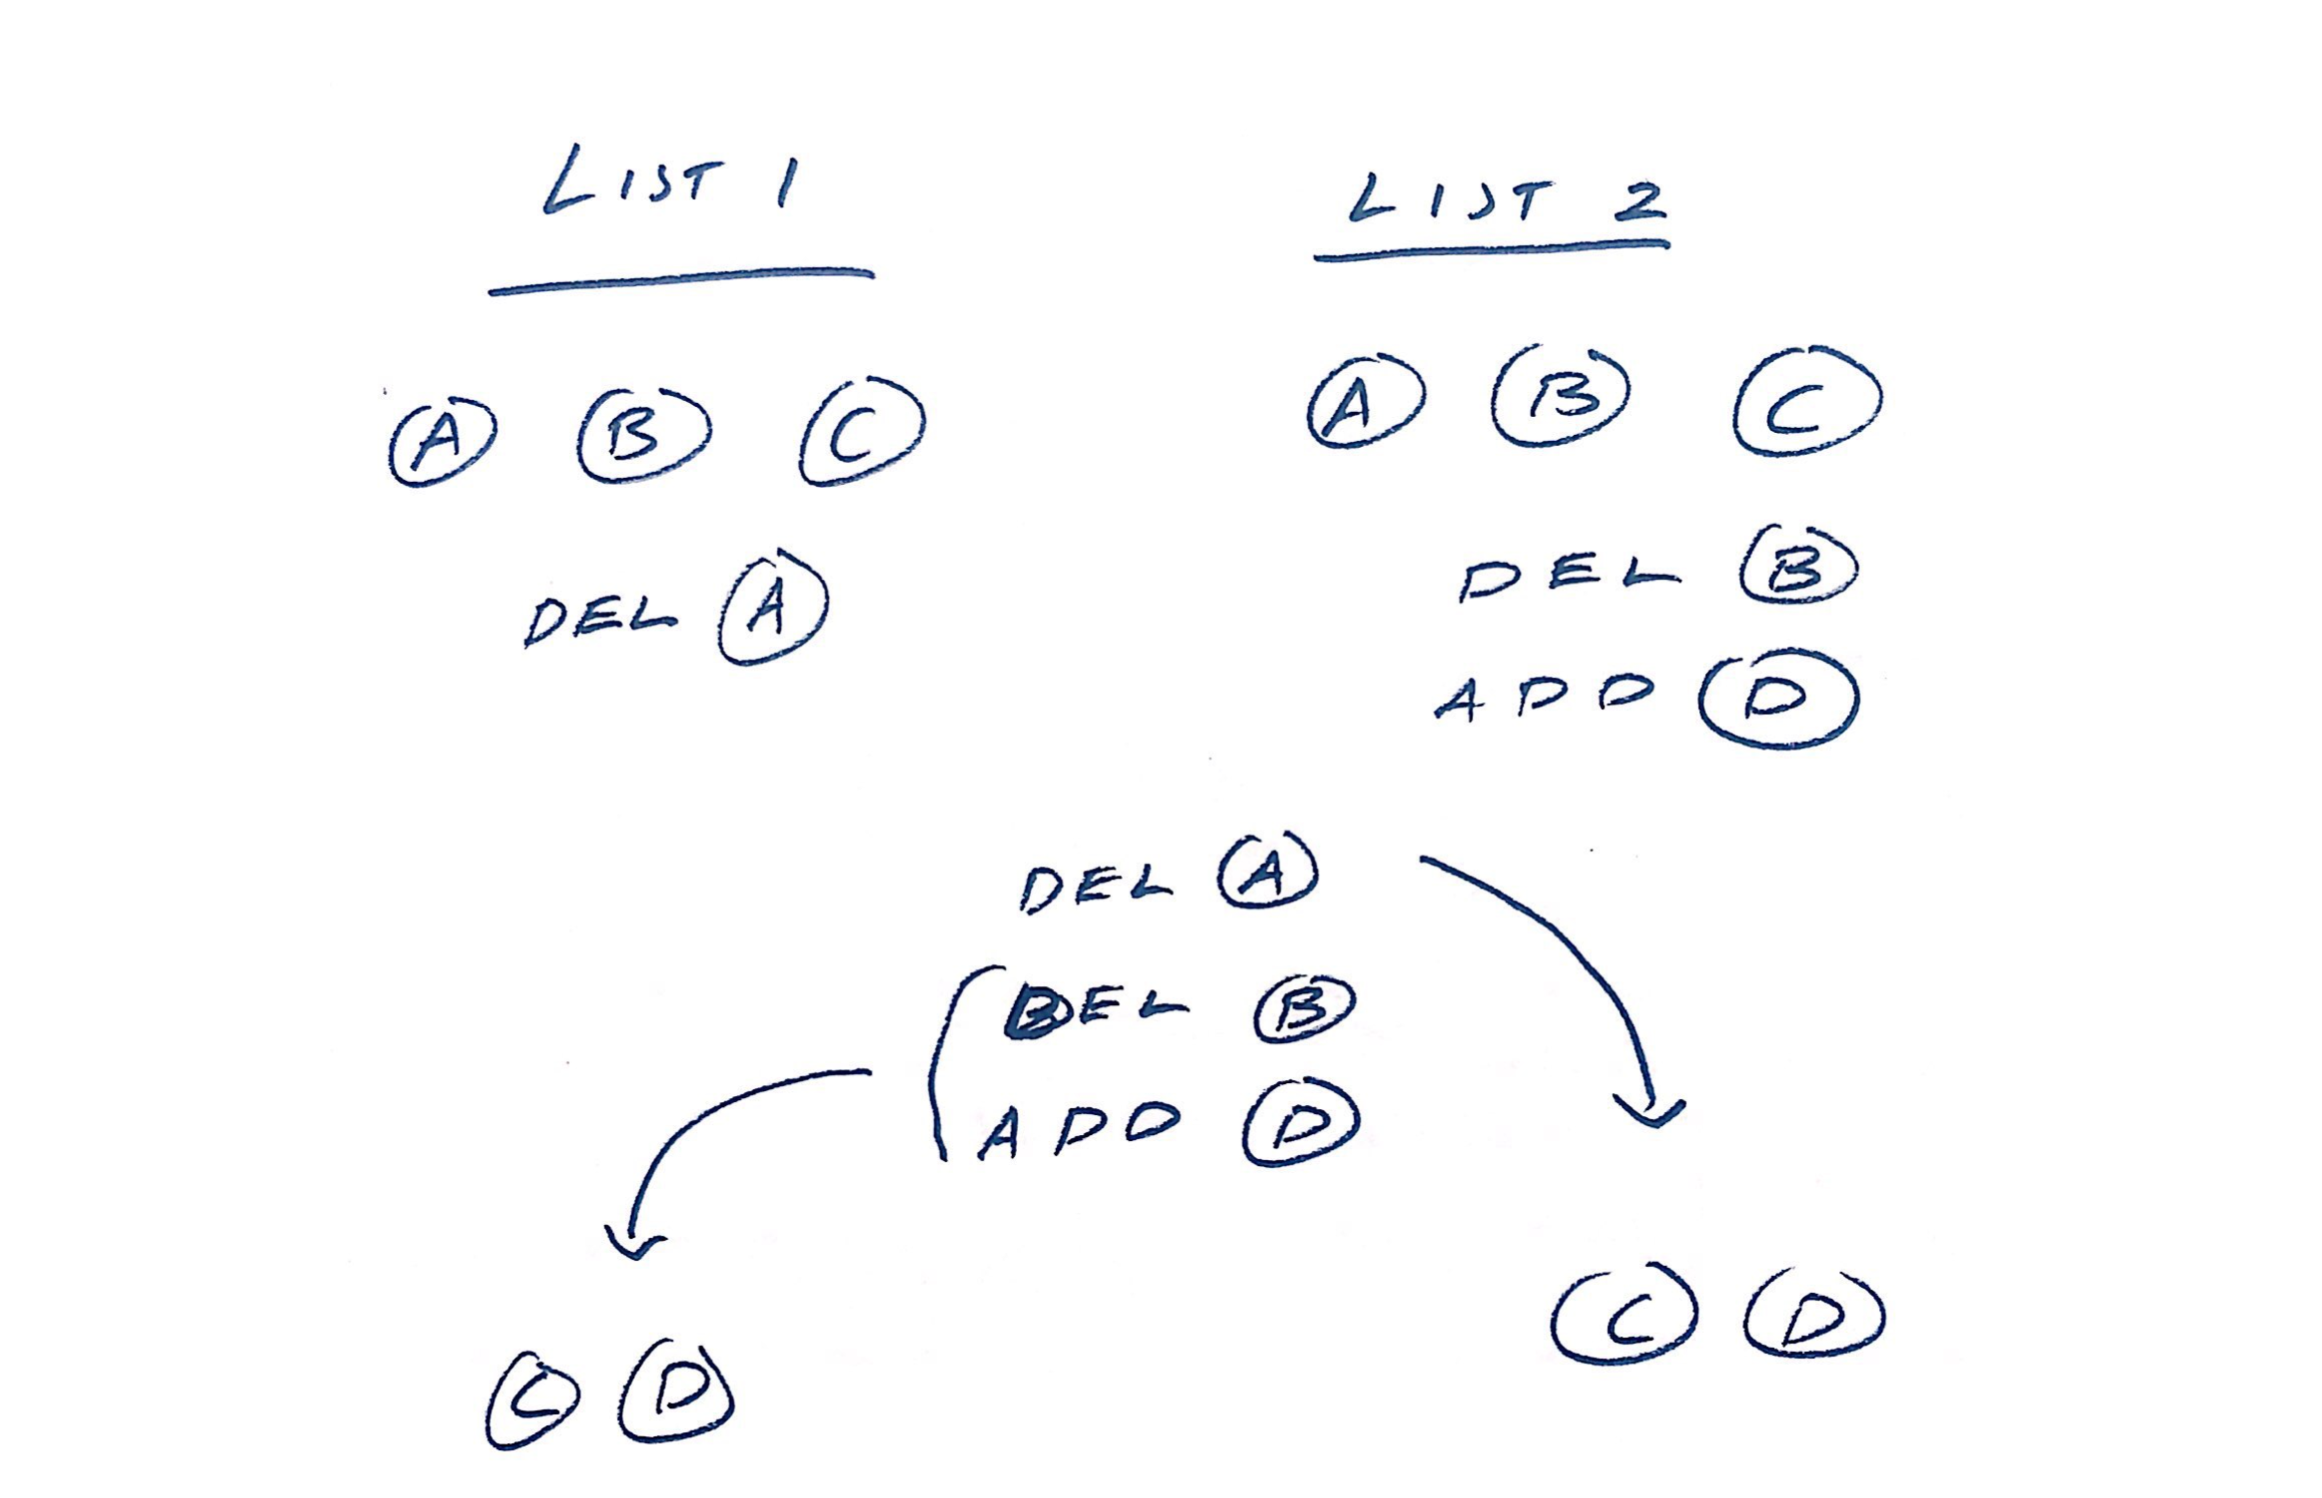 LIST 1
A B C
DEL A
LIST 2
A B C
DEL B
ADD D
DEL A
DEL B
ADD D
C D
C D